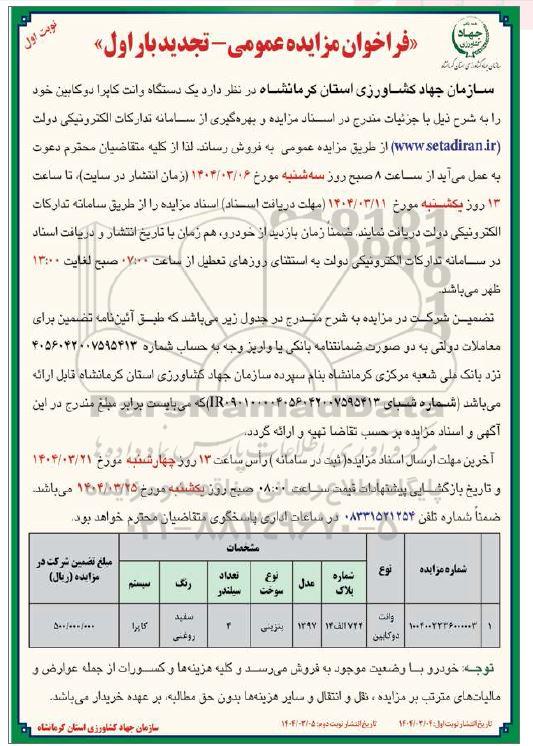 نوبت اول
جهاد کشاورزی
سازمان جهاد کشاورزی استان کرمانشاه
«فراخوان مزایده عمومی – تجدید بار اول»
سازمان جهاد کشاورزی استان کرمانشاه در نظر دارد یک دستگاه وانت کاپرا دوکابین خود
را به شرح ذیل با جزئیات مندرج در اسناد مزایده و بهره‌گیری از سامانه تدارکات الکترونیکی دولت
(www.setadiran.ir) از طریق مزایده عمومی به فروش رساند. لذا از کلیه متقاضیان محترم دعوت
به عمل می‌آید از ساعت ۸ صبح روز سه‌شنبه مورخ ۱۴۰۴/۰۳/۰۶ (زمان انتشار در سایت)، تا ساعت
۱۳ روز یکشنبه مورخ ۱۴۰۴/۰۳/۱۱ (مهلت دریافت اسناد) اسناد مزایده را از طریق سامانه تدارکات
الکترونیکی دولت دریافت نمایند. ضمناً زمان بازدید از خودرو، هم زمان با تاریخ انتشار و دریافت اسناد
در سامانه تدارکات الکترونیکی دولت به استثنای روزهای تعطیل از ساعت ۰۷:۰۰ صبح لغایت ۱۳:۰۰
ظهر می‌باشد.
تضمین شرکت در مزایده به شرح مندرج در جدول زیر می‌باشد که طبق آئین‌نامه تضمین برای
معاملات دولتی به دو صورت ضمانتنامه بانکی یا واریز وجه به حساب شماره ۴۰۵۶۰۴۲۰۰۷۵۹۵۴۱۳
نزد بانک ملی شعبه مرکزی کرمانشاه بنام سپرده سازمان جهاد کشاورزی استان کرمانشاه قابل ارائه
می‌باشد (شماره شبای IR۰۹۰۱۰۰۰۰۴۰۵۶۰۴۲۰۰۷۵۹۵۴۱۳) که می‌بایست برابر مبلغ مندرج در این
آگهی و اسناد مزایده بر حسب تقاضا تهیه و ارائه گردد.
آخرین مهلت ارسال اسناد مزایده( ثبت در سامانه ) رأس ساعت ۱۳ روز چهارشنبه مورخ ۱۴۰۴/۰۳/۲۱
و تاریخ بازگشایی پیشنهادات قیمت ساعت ۰۸:۰۰ صبح روز یکشنبه مورخ ۱۴۰۴/۰۳/۲۵ می‌باشد.
ضمناً شماره تلفن ۰۸۳۳۱۵۲۱۲۵۴ در ساعات اداری پاسخگوی متقاضیان محترم خواهد بود.
شماره مزایده نوع مشخصات مبلغ تضمین شرکت در مزایده (ریال)
شماره پلاک مدل نوع سوخت تعداد سیلندر رنگ سیستم
۱ ۱۰۰۴۰۰۲۲۳۶۰۰۰۰۰۳ وانت دوکابین ۷۲۲الف۱۴ ۱۳۹۷ بنزینی ۴ سفید روغنی کاپرا ۵۰۰/۰۰۰/۰۰۰
توجه: خودرو با وضعیت موجود به فروش می‌رسد و کلیه هزینه‌ها و کسورات از جمله عوارض و
مالیات‌های مترتب بر مزایده ، نقل و انتقال و سایر هزینه‌ها بدون حق مطالبه، بر عهده خریدار می‌باشد.
تاریخ انتشار نوبت اول: ۱۴۰۴/۰۳/۰۴ تاریخ انتشار نوبت دوم: ۱۴۰۴/۰۳/۰۵ سازمان جهاد کشاورزی استان کرمانشاه
ParsNamadData
۰۲۱-۸۸۳۴۹۶۷۰-۵